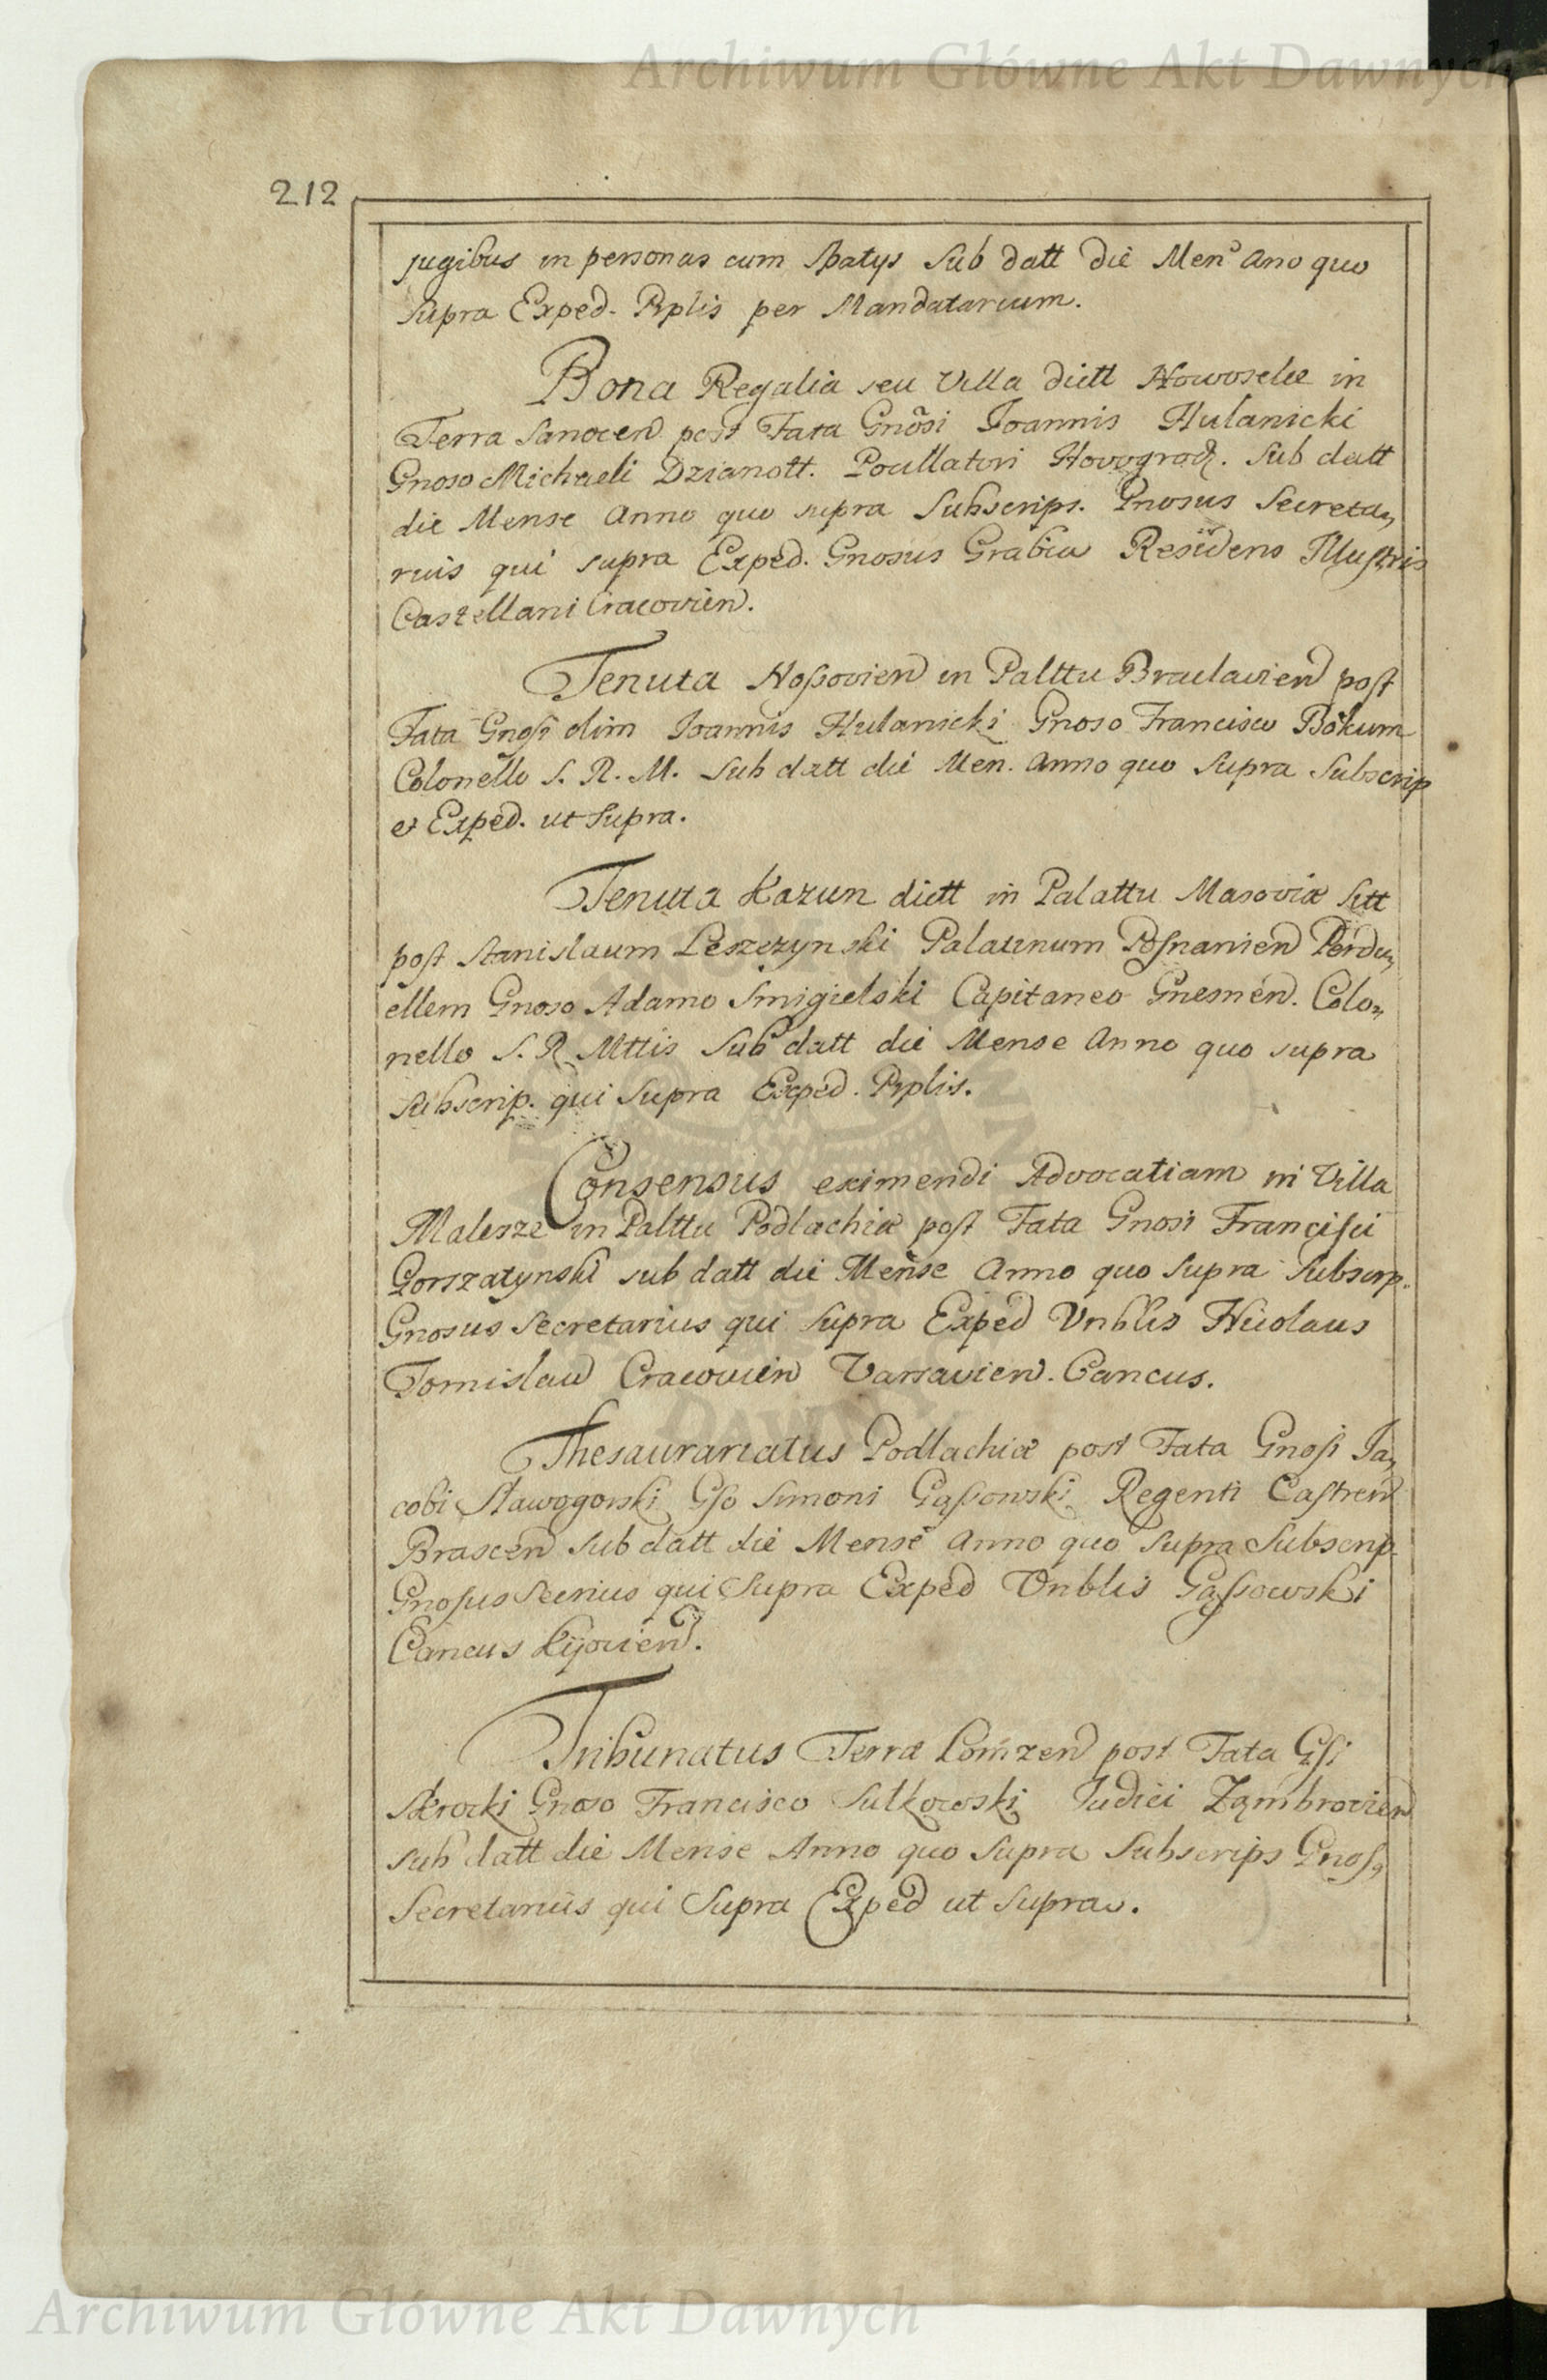 Archiwum Główne Akt Dawnych
212
jugibus in personas cum spatys Sub datt die Men Ano quo
supra Exped. Rplis per Mandatarium.
Bona Regalia seu Villa dictt Nowoselce in
Terra Sanocen post Fata Gnosi Joannis Hulanicki
Gnoso Michaeli Dzianott. Pocillatori Novogrod. Sub datt
die Mense Anno quo supra Subscrips. Gnosus Secreta,,
rius qui supra Exped. Gnosus Grabia Residens Illustris
Castellani Cracovien.
Tenuta Nossovien in Palttu Braclavien post
Fata Gnosi olim Joannis Hulanicki Gnoso Francisco Bokum
Colonello S. R. M. Sub datt die Men. Anno quo Supra Subscrip
et Exped. ut Supra.
Tenuta Kazun dictt in Palattu Masoviæ Sitt
post Stanislaum Leszczynski Palatinum Posnanien Perdu,,
ellem Gnoso Adamo Smigielski Capitaneo Gnesnen. Colo,,
nello S. R. Mttis Sub datt die Mense Anno quo supra
Subscrip. qui Supra Exped. Rplis.
Consensus eximendi Advocatiam in Villa
Malesze in Palttu Podlachiæ post Fata Gnosi Francisci
Gorszatynski sub datt die Mense Anno quo Supra Subscrp.
Gnosus Secretarius qui Supra Exped Vnblis Nicolaus
Tomislaw Cracovien Varsavien. Cancus.
Thesaurariatus Podlachiæ post Fata Gnosi Ja,,
cobi Sławogorski Gso Simoni Gąssowski Regenti Castren
Brascen Sub datt die Mense Anno quo Supra Subscrip
Gnosus Secrius qui Supra Exped Vnblis Gąssowski
Cancus Kijovien.
Tribunatus Terræ Lomzen post Fata Gsi
Skrocki Gnoso Francisco Sulkowski Judici Zambrovien
sub datt die Mense Anno quo Supra Subscrips Gnos,
Secretarius qui Supra Exped ut Supra.
Archiwum Główne Akt Dawnych